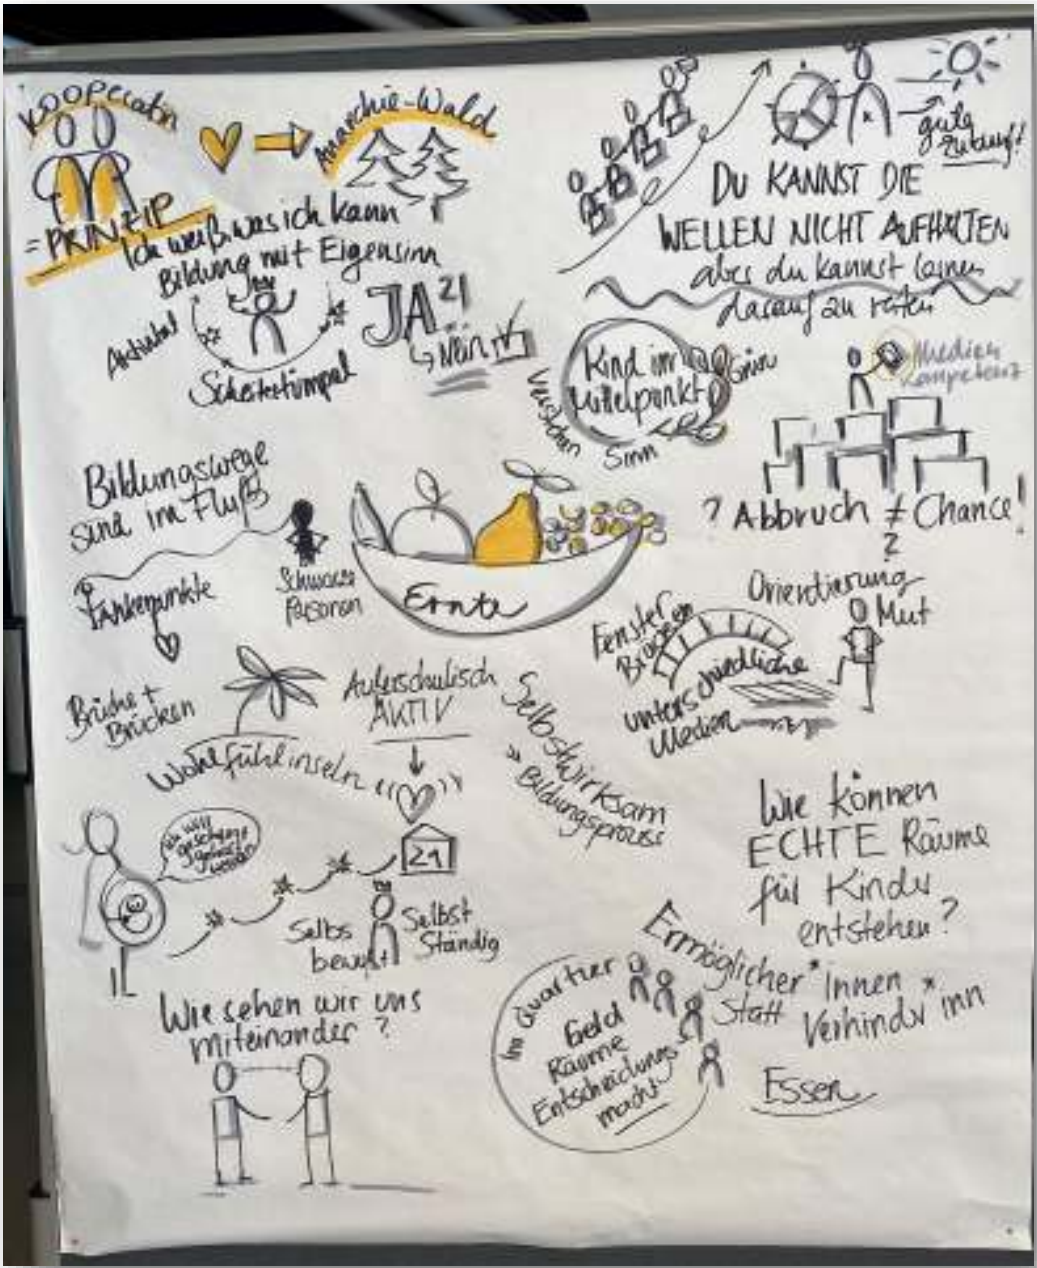 Kooperation
= PRINZIP
Anarchie-Wald
Ich weiß, was ich kann
Bildung mit Eigensinn
JA 21
↳ Nein
DU KANNST DIE
WELLEN NICHT AUFHALTEN
aber du kannst lernen
darauf zu reiten
gute
Zukunft!
Kind im
Mittelpunkt
Verstehen
Sinn
Medien
kompetenz
? Abbruch ≠ Chance!
?
Bildungswege
sind im Fluß
Ankerpunkte
Schwarze
Personen
Ernte
Orientierung
Mut
Fenster
Brücken
unterschiedliche
Medien
Brüche +
Brücken
Wohlfühlinseln
Außerschulisch
AKTIV
Selbstwirksam
» Bildungsprozess
ich will
gesehen
werden
21
Selbs
bewußt
Selbst
Ständig
Wie können
ECHTE Räume
für Kinder
entstehen?
Ermöglicher*innen
Statt
Verhinder*inn
Wie sehen wir uns
miteinander?
Im Quartier
Geld
Räume
Entscheidungs
macht
Essen